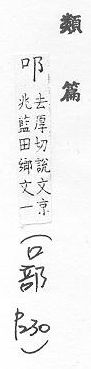 類篇
叩 去厚切說文京
兆藍田鄉文一
(口部 P230)